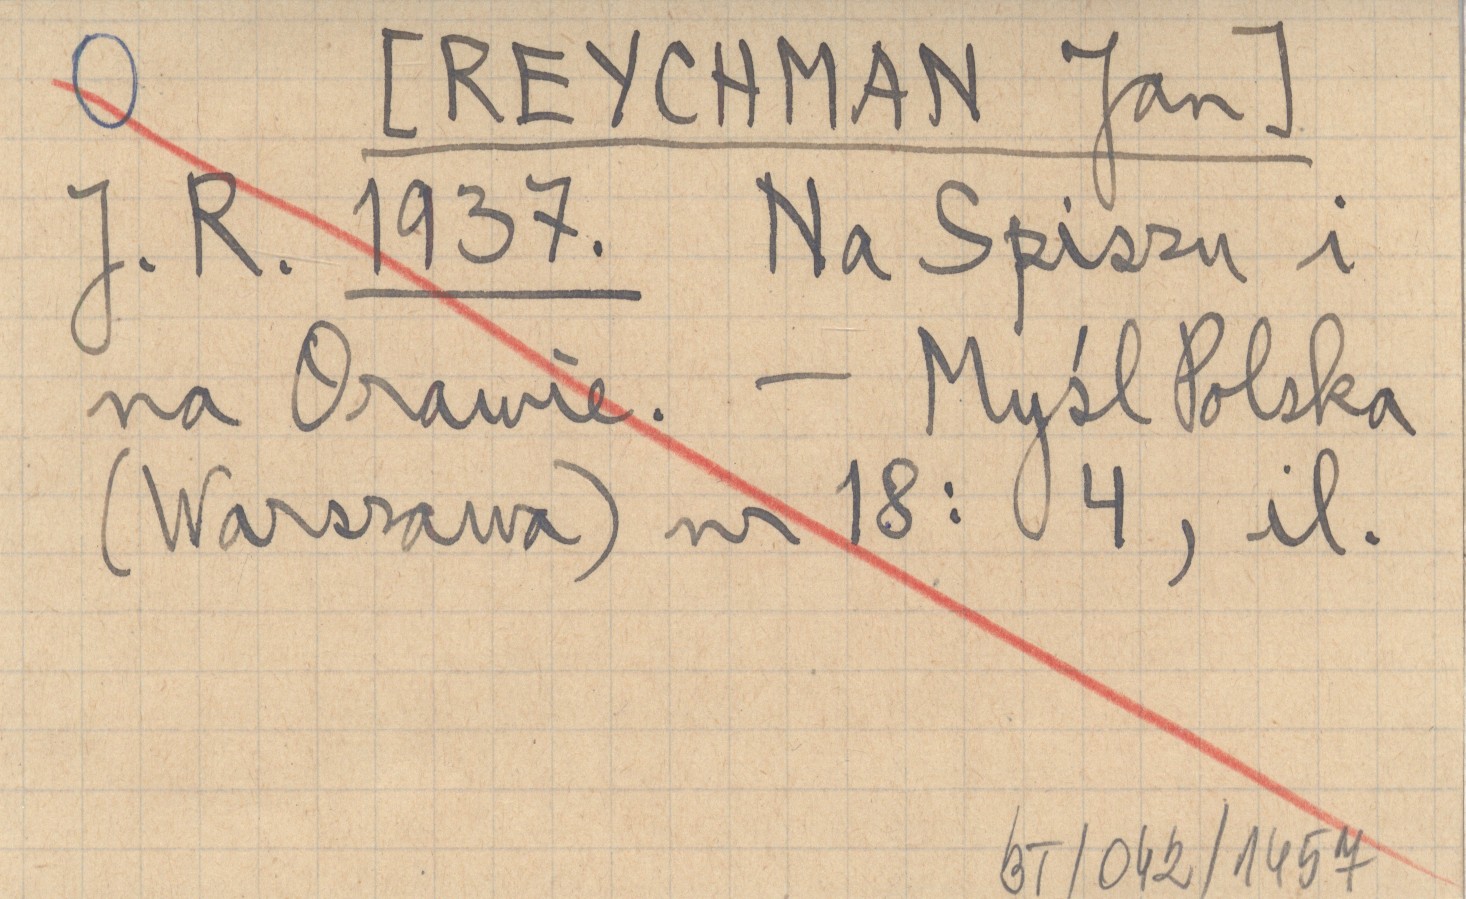 O [REYCHMAN Jan]
J. R. 1937. Na Spiszu i
na Orawie. — Myśl Polska
(Warszawa) nr 18: 4, il.
BT/042/1457